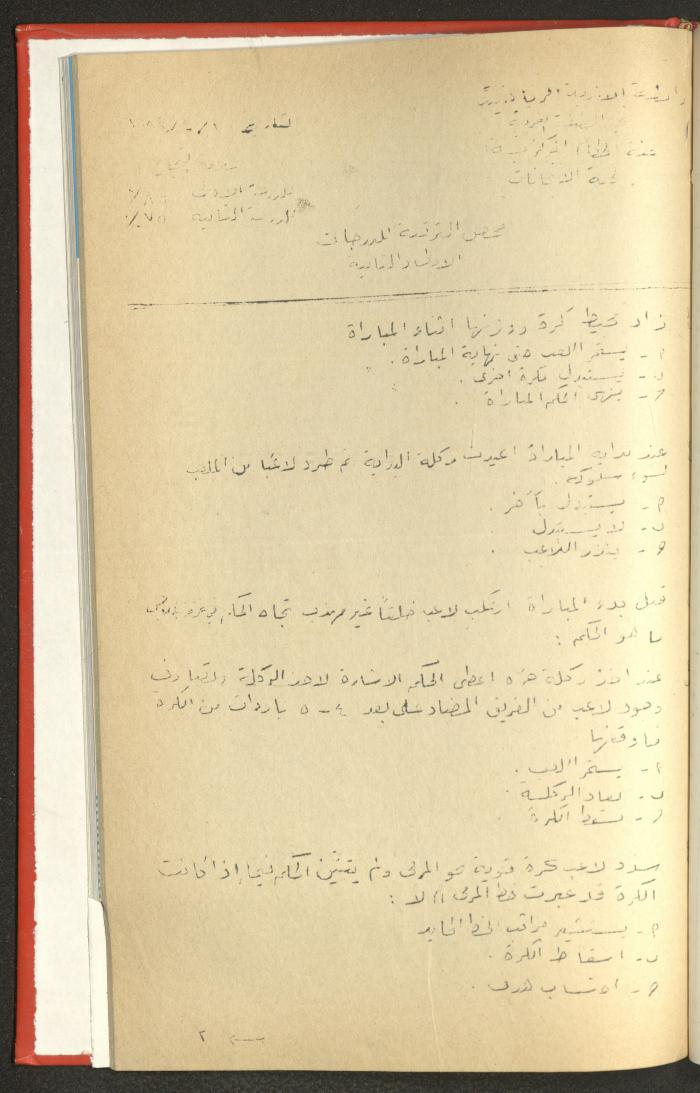 التاريخ
لجنة الحكام المركزية
لجنة الامتحانات
الدرجة الاولى ٨٠٪
الدرجة الثانية ٧٥٪
فحص الترقية للدرجات
الاولى والثانية
زاد محيط كرة ووزنها اثناء المباراة
٢- يستمر اللعب حتى نهاية المباراة .
ب- يستبدل بكرة اخرى .
حـ- ينهي الحكم المباراة .
عند بداية المباراة اعيدت ركلة البداية ثم طرد لاعبا من الملعب
لسوء سلوكه .
٢- يستبدل بآخر .
ب- لا يستبدل
حـ- ينذر اللاعب .
قبل بدء المباراة ارتكب لاعب خلقا غير مهذب تجاه الحكم في غرفة
ما هو الحكم :
عند اخذ ركلة حرة اعطى الحكم الاشارة لاخذ الركلة
وجود لاعب من الفريق المضاد على بعد ٤-٥ ياردات من الكرة
فاوقفها
٢- يستمر اللعب .
ب- تعاد الركلة .
حـ- تسقط الكرة .
سدد لاعب كرة قوية نحو المرمى ولم يتيقن الحكم فيما إذا كانت
الكرة قد عبرت خط المرمى ام لا :
٢- يستشير مراقب الخط المحايد
ب- اسقاط الكرة .
حـ- احتساب هدف .
٢